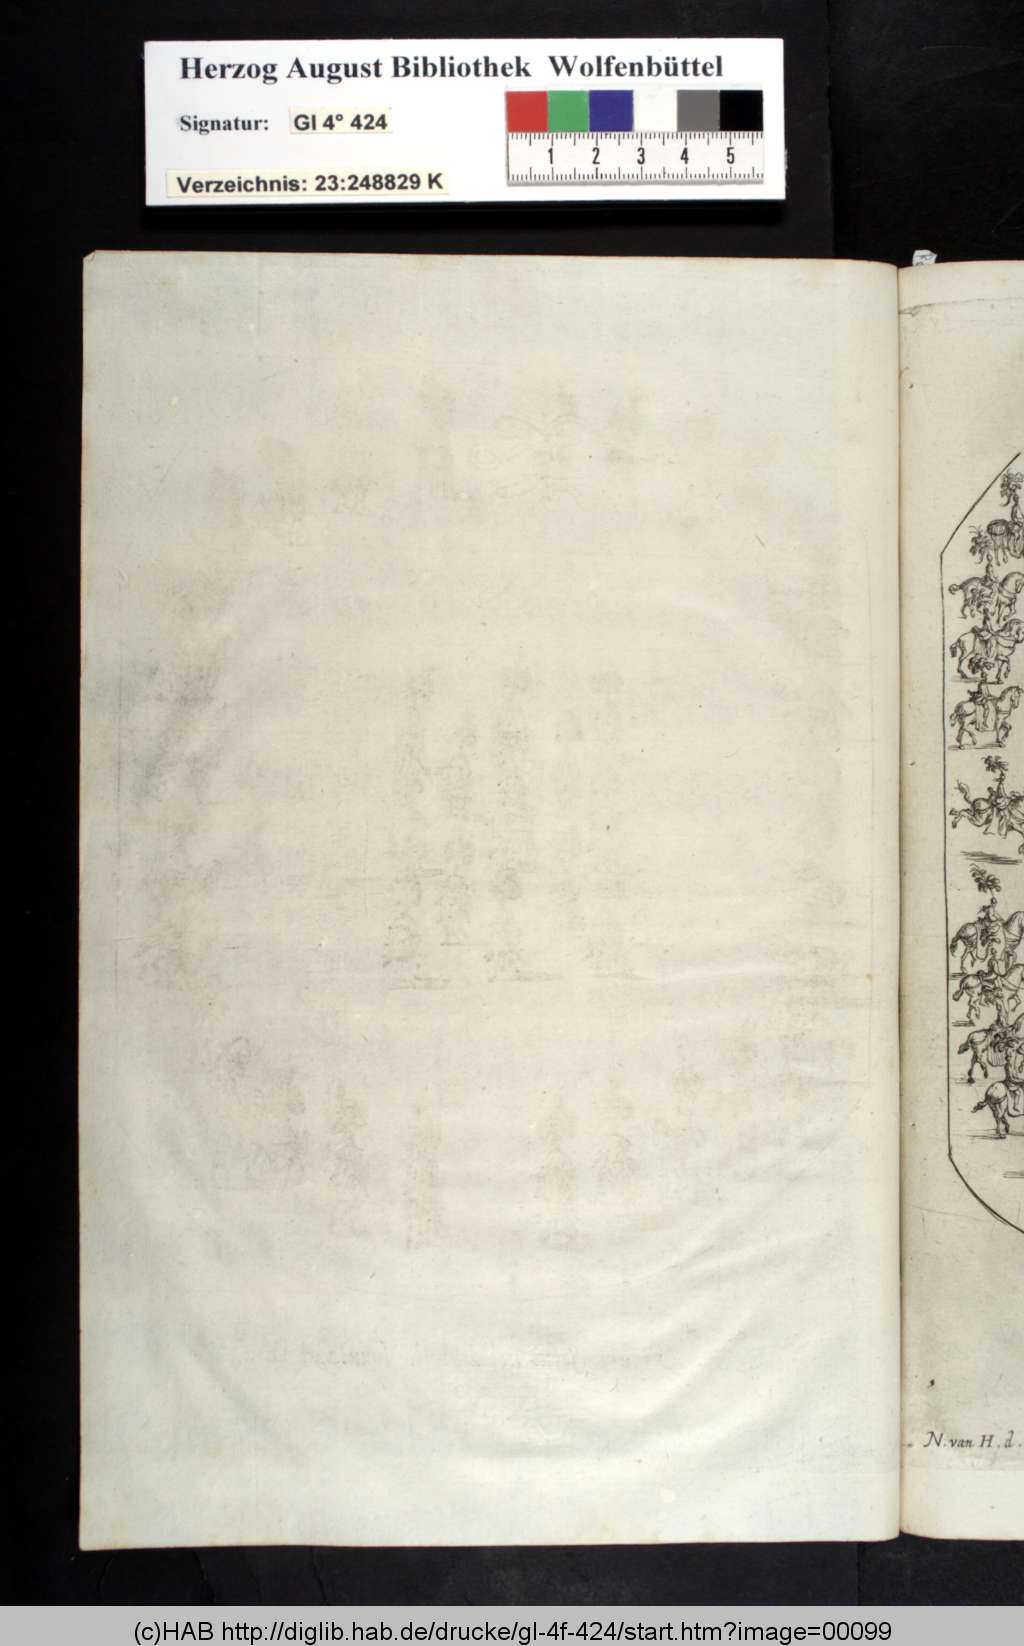 Herzog August Bibliothek Wolfenbüttel
Signatur: Gl 4° 424
1 2 3 4 5
Verzeichnis: 23:248829 K
N. van H. d.
(c)HAB http://diglib.hab.de/drucke/gl-4f-424/start.htm?image=00099